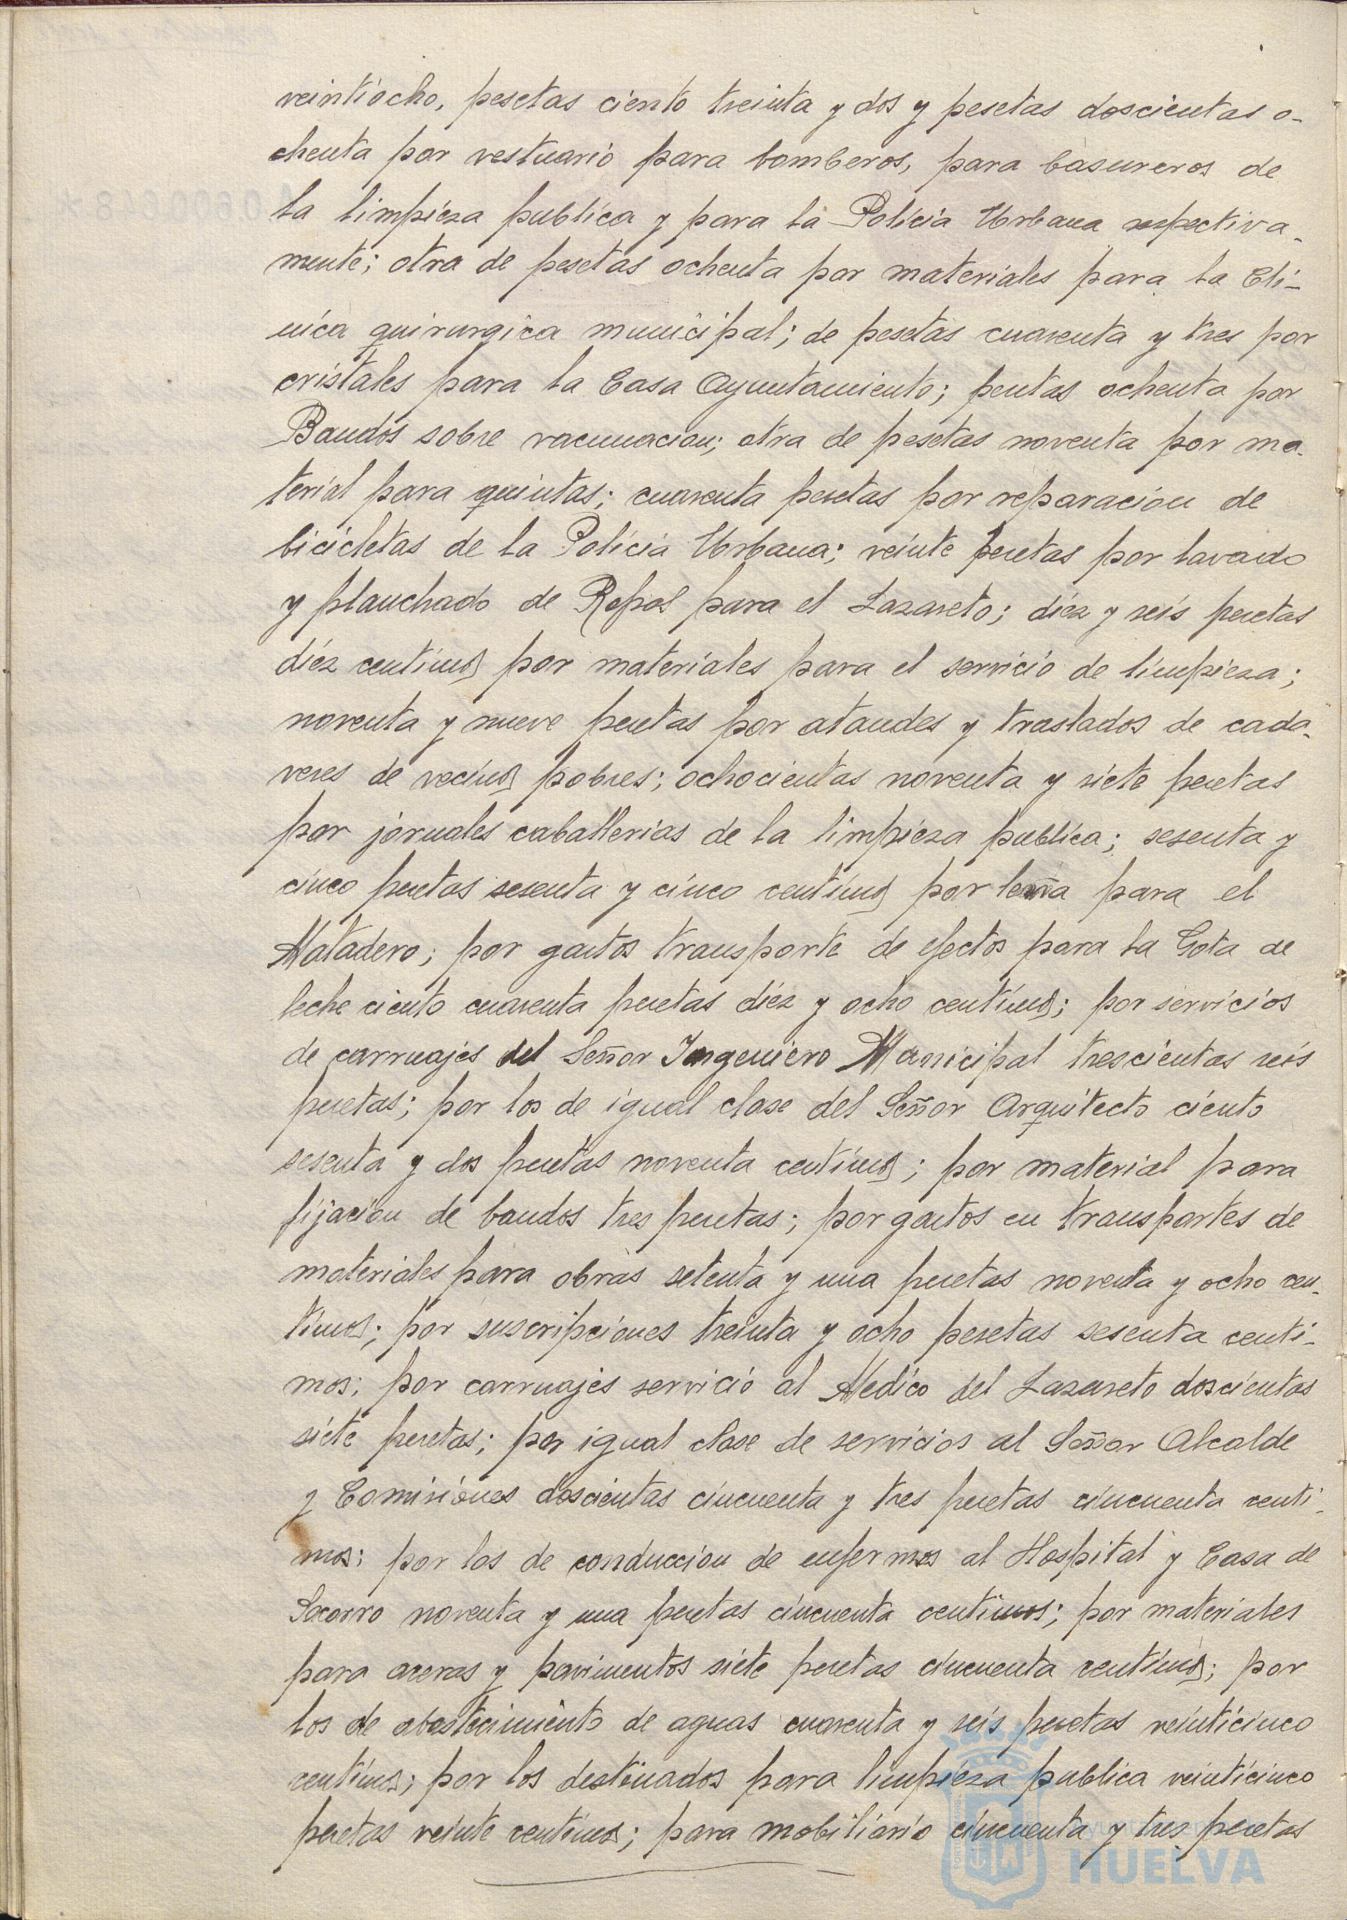 veintiocho, pesetas ciento treinta y dos y pesetas doscientas o-
chenta por vestuario para bomberos, para basureros de
la limpieza publica y para la Policia Urbana respectiva-
mente; otra de pesetas ochenta por materiales para la Cli-
nica quirurgica municipal; de pesetas cuarenta y tres por
cristales para la Casa Ayuntamiento; pesetas ochenta por
Bandos sobre vacunacion; otra de pesetas noventa por ma-
terial para quintas; cuarenta pesetas por reparacion de
bicicletas de la Policia Urbana; veinte pesetas por lavado
y planchado de Ropas para el Lazareto; diez y seis pesetas
diez centimos por materiales para el servicio de limpieza;
noventa y nueve pesetas por ataudes y traslados de cada-
veres de vecinos pobres; ochocientas noventa y siete pesetas
por jornales caballerias de la limpieza publica; sesenta y
cinco pesetas sesenta y cinco centimos por leña para el
Matadero; por gastos transporte de efectos para la Gota de
leche ciento cuarenta pesetas diez y ocho centimos; por servicios
de carruajes del Señor Ingeniero Municipal trescientas seis
pesetas; por los de igual clase del Señor Arquitecto ciento
sesenta y dos pesetas noventa centimos; por material para
fijacion de bandos tres pesetas; por gastos en transportes de
materiales para obras setenta y una pesetas noventa y ocho cen-
timos; por suscripciones treinta y ocho pesetas sesenta centi-
mos; por carruajes servicio al Medico del Lazareto doscientas
siete pesetas; por igual clase de servicios al Señor Alcalde
y Comisiones doscientas cincuenta y tres pesetas cincuenta centi-
mos; por los de conduccion de enfermos al Hospital y Casa de
Socorro noventa y una pesetas cincuenta centimos; por materiales
para aceras y pavimentos siete pesetas cincuenta centimos; por
los de abastecimiento de aguas cuarenta y seis pesetas veinticinco
centimos; por los destinados para limpieza publica veinticinco
pesetas veinte centimos; para mobiliario cincuenta y tres pesetas
Ayuntamiento
HUELVA